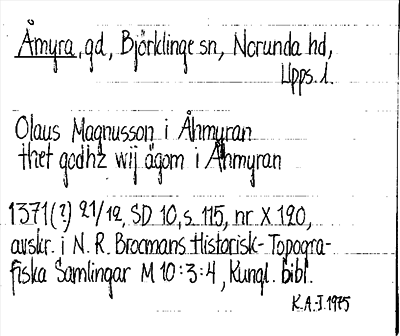 Åmyra, gd, Björklinge sn, Norunda hd,
Upps. l.
Olaus Magnusson i Åhmyran
thet godhz wij ägom i Åhmyran
1371(?) 21/12, SD 10, s. 115, nr X 120,
avskr. i N. R. Brocmans Historisk-Topogra-
fiska Samlingar M 10:3:4, Kungl. bibl.
K.A.J. 1975